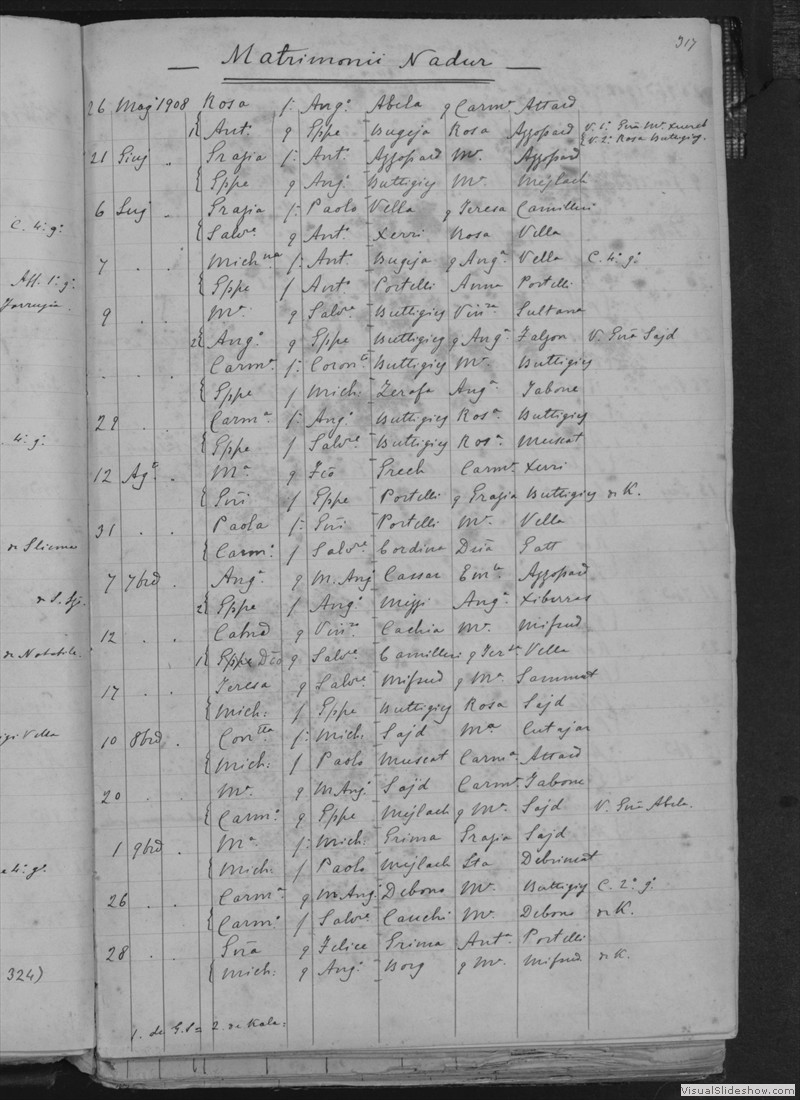 317
— Matrimonii Nadur —
26 Mag° 1908 Rosa f: Ang° Abela q Carm.ª Attard
1{ Ant.° q Gppe Bugeja Rosa Azzopard V. 1ª Gio Mª Xuereb
{ V. 2ª Rosa Buttigieg.
21 Giug " Grazia f: Ant.° Azzopard Mª Azzopard
{ Gppe q Ang° Buttigieg Mª Mejlach
6 Lug " Grazia f: Paolo Vella q Teresa Camilleri
{ Salv.re q Ant.° Xerri Rosa Vella
7 . . Mich.na f: Ant.° Bugeja q Ang.ª Vella C. 4° g°
{ Gppe f Ant.° Portelli Anna Portelli
9 . . Mª q Salv.re Buttigieg Vin.za Sultana
2{ Ang° q Gppe Buttigieg q Ang.ª Falzon V. Sajd
. . . Carm.ª f: Buttigieg Mª Buttigieg
{ Gppe f Mich: Zerafa Ang.ª Tabone
29 . . Carm.ª f: Ang° Buttigieg Rosª Buttigieg
{ Gppe f Salv.re Buttigieg Rosª Muscat
12 Ag° . Mª q Grech Carm.ª Xerri
{ f Gppe Portelli q Grazia Buttigieg de K.
31 . . Paola f: Portelli Mª Vella
{ Carm° f Salv.re Cordina Gatt
7 7bre . Ang.ª q M. Ang° Cassar Azzopard
2{ Gppe f Ang° Mizzi Ang.ª Xiberras
12 . . q Cachia Mª Mifsud
1{ Gppe q Salv.re Camilleri q Vella
17 . . Teresa q Salv.re Mifsud q Mª Sammut
{ Mich: f Gppe Buttigieg Rosa Sajd
10 8bre . f: Mich: Sajd Mª Cutajar
{ Mich: f Paolo Muscat Carm.ª Attard
20 . . Mª q M. Ang° Sajd Carm.ª Tabone
{ Carm° q Gppe Mejlach q Mª Sajd V. Abela.
1 9bre . Mª f: Mich: Grima Grazia Sajd
{ Mich: f Paolo Mejlach Debrincat
26 . . Carm.ª q M. Ang° Debono Mª Buttigieg C. 2° g°
{ Carm° f Salv.re Cauchi Mª Debono de K.
28 . . q Felice Grima Ant.ª Portelli
{ Mich: q Ang° Borg q Mª Mifsud de K.
1. de 2. de Kala:
C. 4° g°
Aff. 1° g°
Farrugia.
4° g°
de Sliema
de Notabile.
Vella
4° g°
324)
VisualSlideshow.com